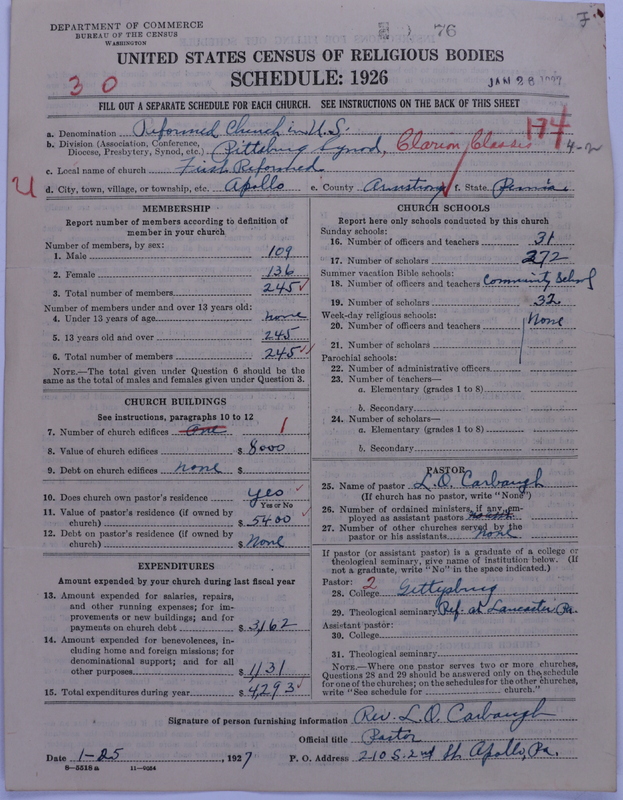 DEPARTMENT OF COMMERCE
BUREAU OF THE CENSUS
WASHINGTON
76
F
UNITED STATES CENSUS OF RELIGIOUS BODIES
SCHEDULE: 1926
3 0
JAN 28 1927
FILL OUT A SEPARATE SCHEDULE FOR EACH CHURCH. SEE INSTRUCTIONS ON THE BACK OF THIS SHEET
174
4-2
a. Denomination Reformed Church in U.S.
b. Division (Association, Conference, Diocese, Presbytery, Synod, etc.) Pittsburg Synod, Clarion Classis
c. Local name of church First Reformed
d. City, town, village, or township, etc. Apollo e. County Armstrong f. State Penn'a
MEMBERSHIP
Report number of members according to definition of
member in your church
Number of members, by sex:
1. Male 109
2. Female 136
3. Total number of members 245
Number of members under and over 13 years old:
4. Under 13 years of age none
5. 13 years old and over 245
6. Total number of members 245
NOTE.—The total given under Question 6 should be the
same as the total of males and females given under Question 3.
CHURCH BUILDINGS
See instructions, paragraphs 10 to 12
7. Number of church edifices One 1
8. Value of church edifices $ 8000
9. Debt on church edifices none $
10. Does church own pastor's residence yes
Yes or No
11. Value of pastor's residence (if owned by
church) $ 5400
12. Debt on pastor's residence (if owned by
church) $ None
EXPENDITURES
Amount expended by your church during last fiscal year
13. Amount expended for salaries, repairs,
and other running expenses; for im-
provements or new buildings; and for
payments on church debt $ 3,162
14. Amount expended for benevolences, in-
cluding home and foreign missions; for
denominational support; and for all
other purposes $ 1131
15. Total expenditures during year $ 4,293
CHURCH SCHOOLS
Report here only schools conducted by this church
Sunday schools:
16. Number of officers and teachers 31
17. Number of scholars 272
Summer vacation Bible schools:
18. Number of officers and teachers Community School
19. Number of scholars 32
Week-day religious schools:
20. Number of officers and teachers None
21. Number of scholars
Parochial schools:
22. Number of administrative officers
23. Number of teachers—
a. Elementary (grades 1 to 8)
b. Secondary
24. Number of scholars—
a. Elementary (grades 1 to 8)
b. Secondary
PASTOR
25. Name of pastor L.O. Carbaugh
(If church has no pastor, write "None")
26. Number of ordained ministers, if any, em-
ployed as assistant pastors
27. Number of other churches served by the
pastor or his assistants none
If pastor (or assistant pastor) is a graduate of a college or
theological seminary, give name of institution below. (If
not a graduate, write "No" in the space indicated.)
Pastor: 2
28. College Gettysburg
29. Theological seminary Ref. at Lancaster Pa.
Assistant pastor:
30. College
31. Theological seminary
NOTE.—Where one pastor serves two or more churches,
Questions 28 and 29 should be answered only on the schedule
for one of the churches; on the schedules for the other churches,
write "See schedule for church."
Signature of person furnishing information Rev. L.O. Carbaugh
Official title Pastor
Date 1-25, 1927 P. O. Address 210 S. 2nd St. Apollo, Pa.
8—5518 a 11—9054